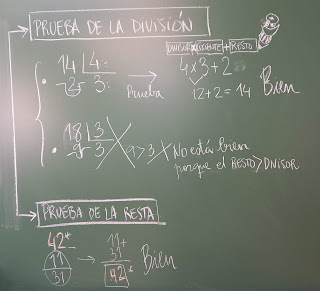 PRUEBA DE LA DIVISIÓN
DIVISOR COCIENTE + RESTO
14 4 → 4 x 3 + 2
-2- 3 Prueba 12+2 = 14 Bien
18 3 9 > 3 No está bien
9 3 porque el RESTO > DIVISOR
PRUEBA DE LA RESTA
42 - 11+
11 → 31
31 42 Bien